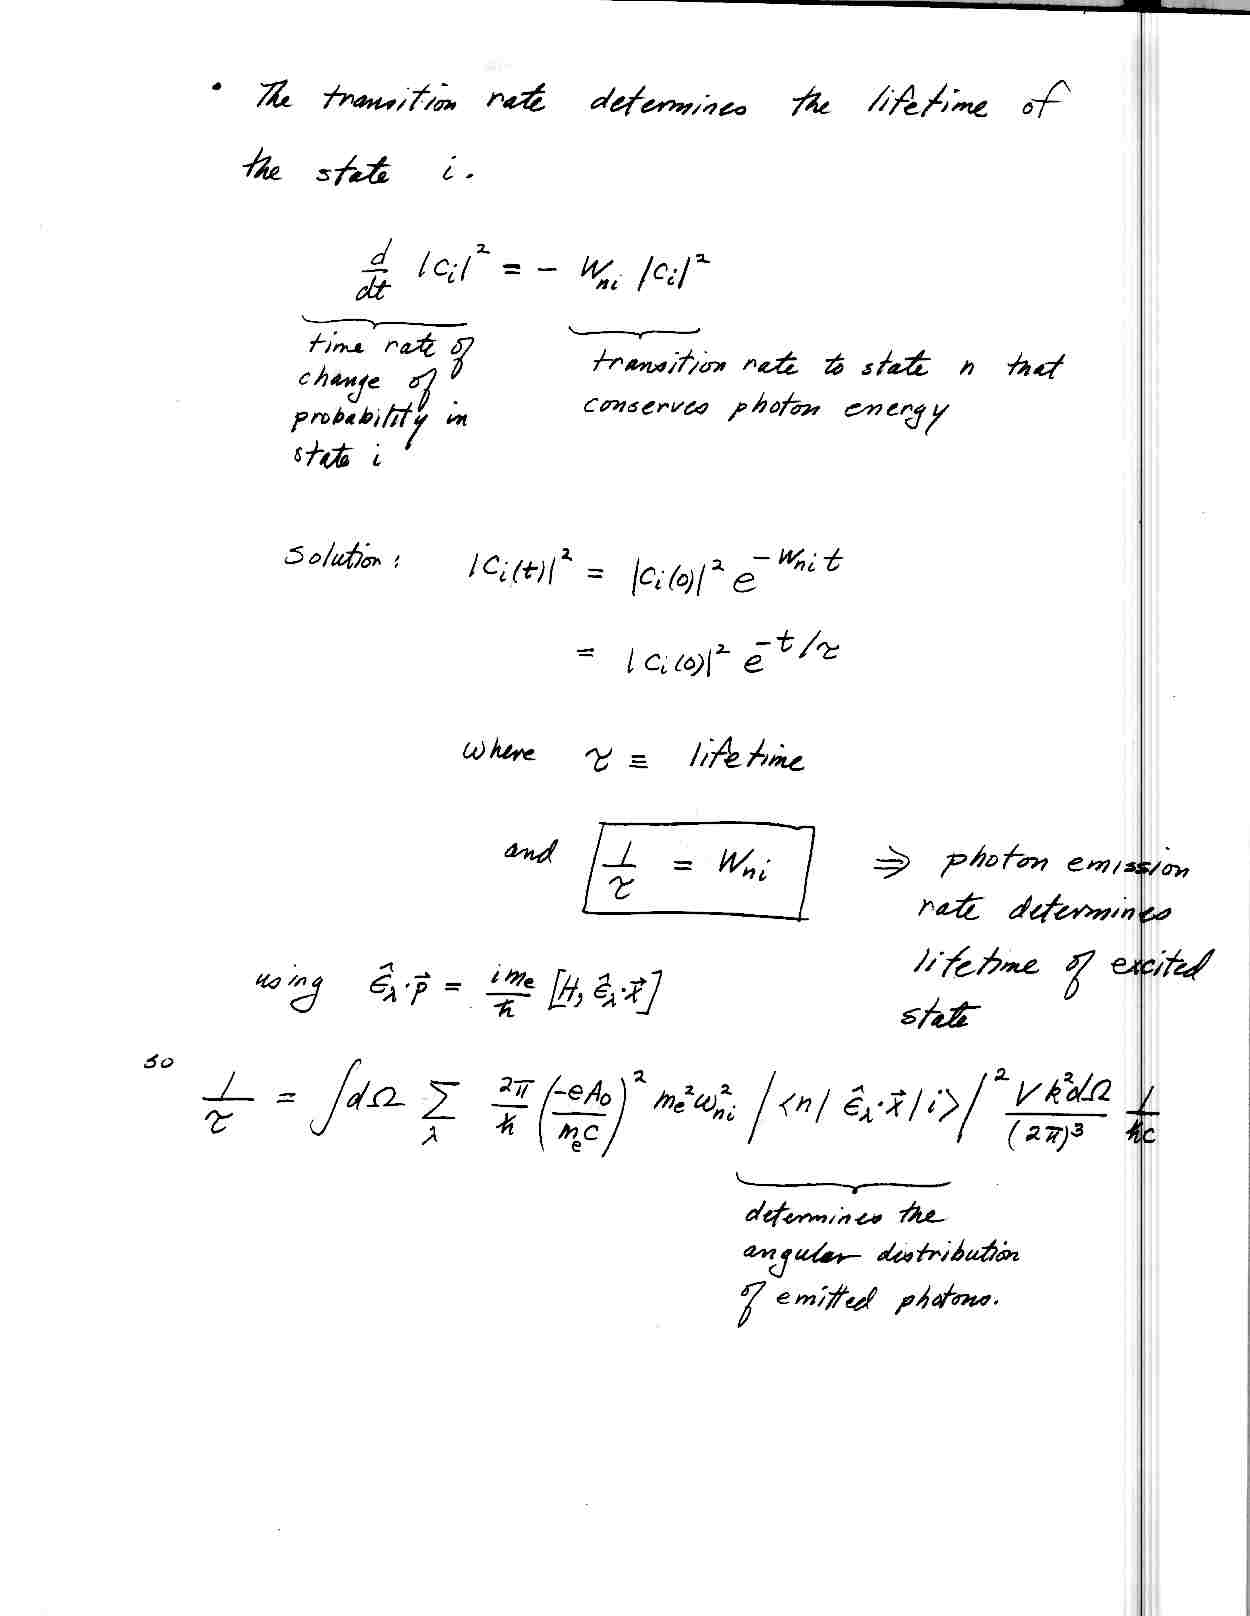 • The transition rate determines the lifetime of
the state i.
d/dt |cᵢ|² = - Wₙᵢ |cᵢ|²
time rate of
change of
probability in
state i
transition rate to state n that
conserves photon energy
solution: |Cᵢ(t)|² = |Cᵢ(0)|² e^{-Wₙᵢt}
= |Cᵢ(0)|² e^{-t/τ}
where τ ≡ lifetime
and 1/τ = Wₙᵢ ⇒ photon emission
rate determines
lifetime of excited
state
using ε̂_λ·p⃗ = im_e/ħ [H, ε̂_λ·x⃗]
so 1/τ = ∫dΩ Σ_λ 2π/ħ (-eA₀/m_e c)² m_e² ω²ₙᵢ |<n| ε̂_λ·x⃗ |i>|² V k²dΩ/(2π)³ 1/ħc
determines the
angular distribution
of emitted photons.